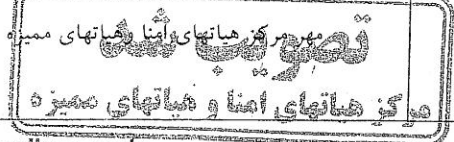 مهر مرکز هیاتهای امنا و هیاتهای ممیزه
تصویب شد
مرکز هیاتهای امنا و هیاتهای ممیزه